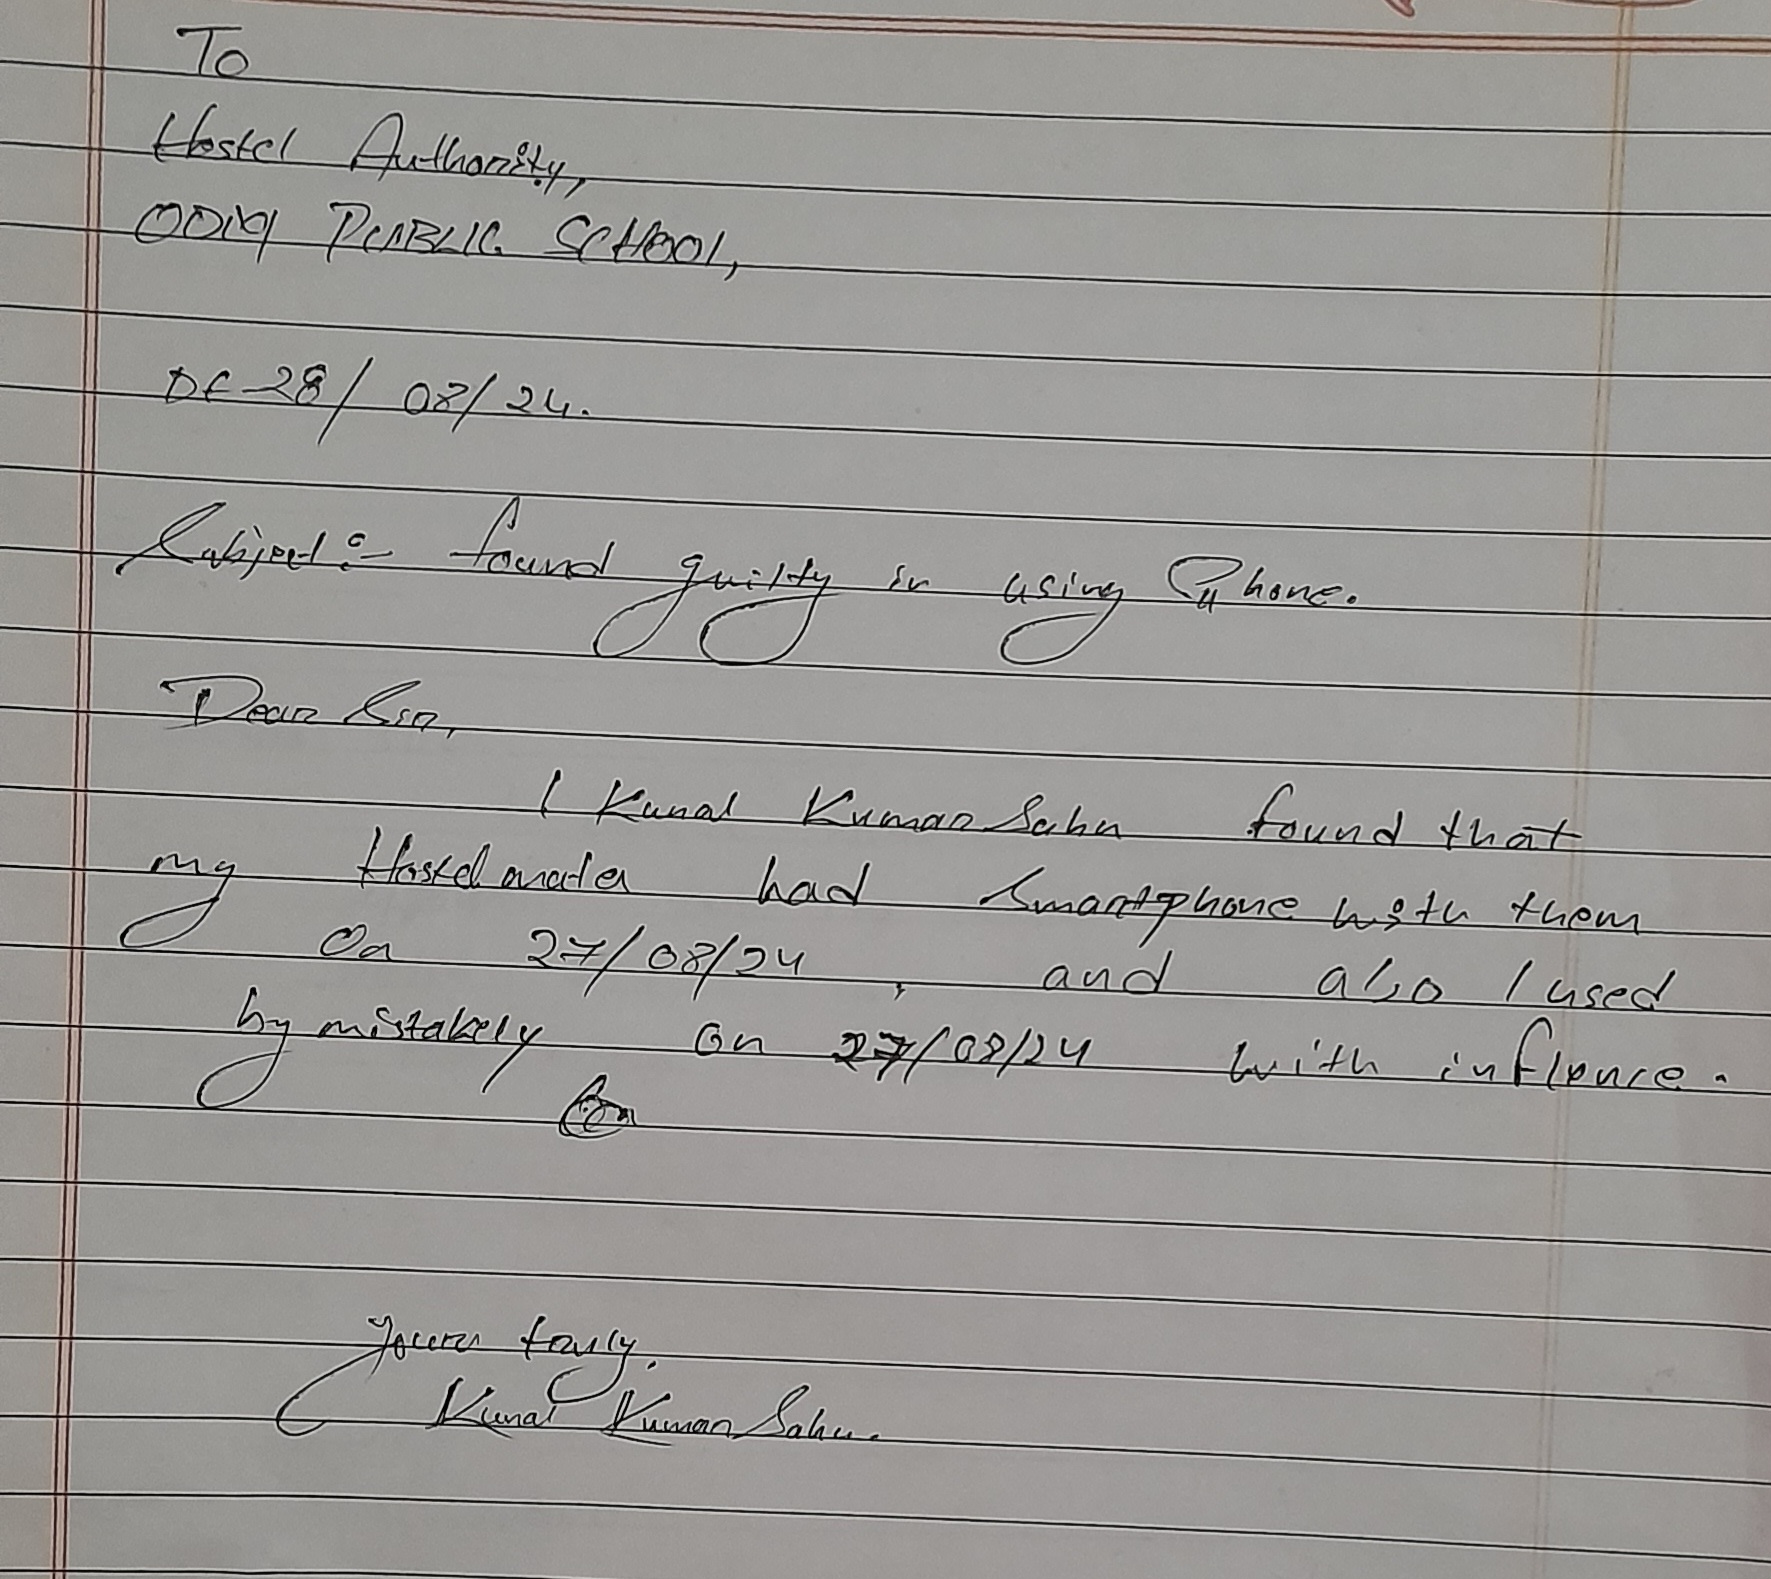 To
Hostel Authority,
ODM PUBLIC SCHOOL,
Dt-28/08/24.
Subject:- found guilty in using Phone.
Dear Sir,
I Kunal Kumar Sahu found that
my Hostel mates had Smartphone with them
On 27/08/24, and also I used
by mistakely on 27/08/24 with inflence.
Yours
Kunal Kumar Sahu.